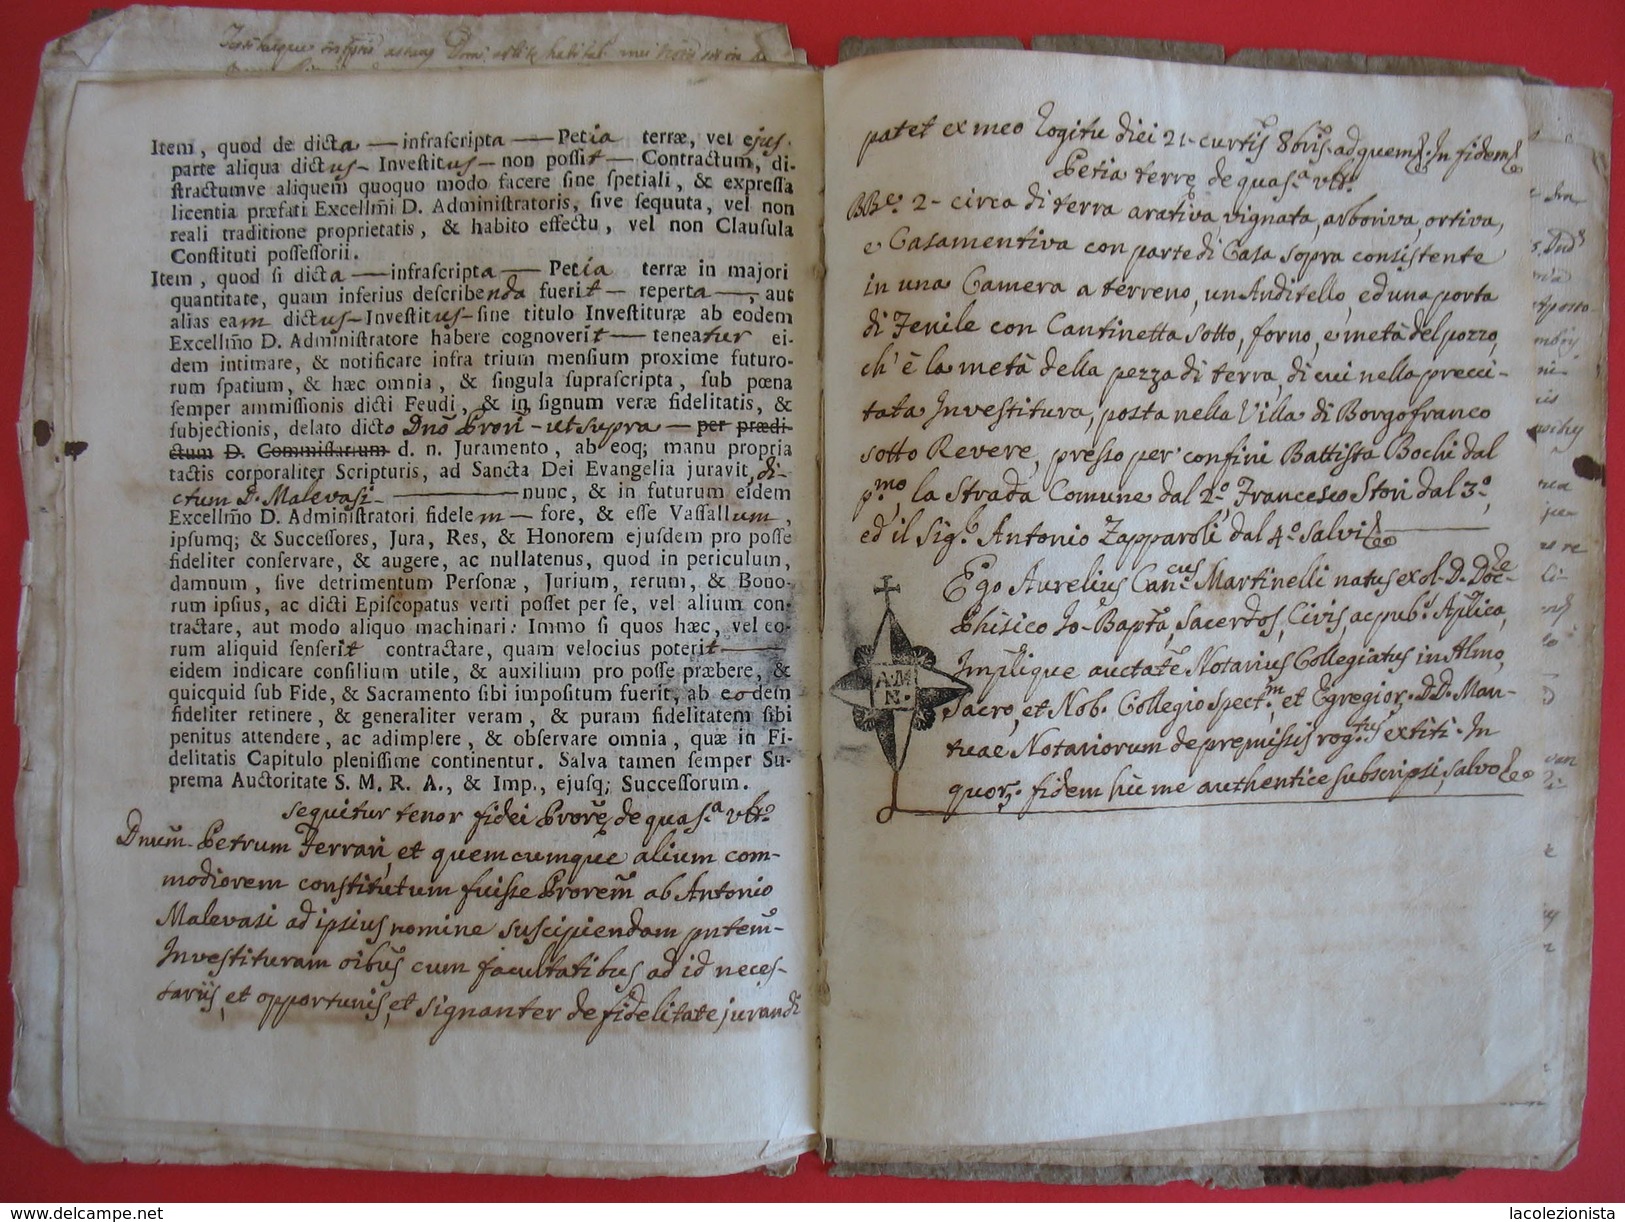 Item, quod de dicta — infrascripta — Petia terræ, vel ejus
parte aliqua dictus – Investitus – non possit — Contractum, di-
stractumve aliquem quoquo modo facere sine spetiali, & expressa
licentia præfati Excellm̃i D. Administratoris, sive sequuta, vel non
reali traditione proprietatis, & habito effectu, vel non Clausula
Constituti possessorii.
Item, quod si dicta — infrascripta — Petia terræ in majori
quantitate, quam inferius describenda fuerit — reperta —, aut
alias eam dictus – Investitus – sine titulo Investituræ ab eodem
Excellm̃o D. Administratore habere cognoverit — teneatur ei-
dem intimare, & notificare infra trium mensium proxime futuro-
rum spatium, & hæc omnia, & singula suprascripta, sub pœna
semper ammissionis dicti Feudi, & in signum veræ fidelitatis, &
subjectionis, delato dicto Dnõ Proñ – ut supra — per prædi-
ctum D. Commissarium d. n. Juramento, ab eoq; manu propria
tactis corporaliter Scripturis, ad Sancta Dei Evangelia juravit, di-
ctum D. Malevasi — nunc, & in futurum eidem
Excellm̃o D. Administratori fidelem — fore, & esse Vassallum,
ipsumq; & Successores, Jura, Res, & Honorem ejusdem pro posse
fideliter conservare, & augere, ac nullatenus, quod in periculum,
damnum, sive detrimentum Personæ, Jurium, rerum, & Bono-
rum ipsius, ac dicti Episcopatus verti posset per se, vel alium con-
tractare, aut modo aliquo machinari: Immo si quos hæc, vel eo-
rum aliquid senserit contractare, quam velocius poterit —
eidem indicare consilium utile, & auxilium pro posse præbere, &
quicquid sub Fide, & Sacramento sibi impositum fuerit, ab eodem
fideliter retinere, & generaliter veram, & puram fidelitatem sibi
penitus attendere, ac adimplere, & observare omnia, quæ in Fi-
delitatis Capitulo plenissime continentur. Salva tamen semper Su-
prema Auctoritate S. M. R. A., & Imp., ejusq; Successorum.
sequitur tenor fidei Prorẽ de quas.ª vltº
Dnum̃ Petrum Ferrari, et quemcumque alium com-
modiorem constitutum fuisse Prorem̃ ab Antonio
Malevasi ad ipsius nomine suscipiendam pntem̃
Investituram oibus̃ cum facultatibus ad id neces-
sariis, et opportunis, et signanter de fidelitate jurandi
patet ex meo Rogitu diei 21. curtis̃ 8bris̃ ad quem &. In fidem &
Petia terrę de quas.ª vltº
BBe. 2 – circa di terra arativa, vignata, arboriva, ortiva,
e Casamentiva con parte di Casa sopra consistente
in una Camera a terreno, un Anditello, ed una porta
di Fenile con Cantinetta sotto, forno, e metà del pozzo,
ch' è la metà della pezza di terra, di cui nella preci-
tata Investitura, posta nella Villa di Borgofranco
sotto Revere, presso per confini Battista Bochi dal
pmo, la Strada Comune dal 2º, Francesco Stori dal 3º,
ed il Sigr. Antonio Zapparoli dal 4º salvi &
Ego Aurelius Cancus Martinelli natus ex ol. D. Docte
Phisico Jo: Baptã, Sacerdos, Civis, ac pub.s Aplica,
Impliq̃ue auctatẽ Notarius Collegiatus in Almo,
Sacro, et Nob. Collegio Spect.m, et Egregior. DD. Man-
tuae Notariorum de premissis rogtus extiti. In
quor. fidem hic me authentice subscripsi, salvo &
A.M.
N.
delcampe.net
lacolezionista